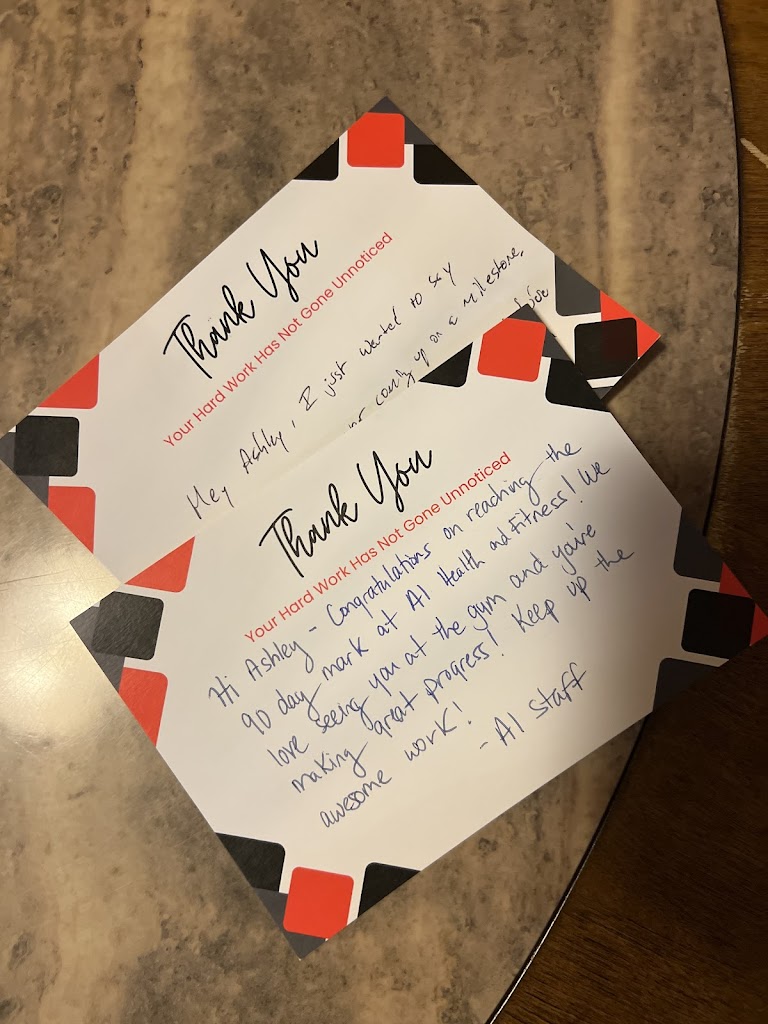 Thank You
Your Hard Work Has Not Gone Unnoticed
Hey Ashley, I just wanted to say
coming up on a milestone,
Thank You
Your Hard Work Has Not Gone Unnoticed
Hi Ashley - Congratulations on reaching the
90 day mark at A1 Health and Fitness! We
love seeing you at the gym and you're
making great progress! Keep up the
awesome work!
- A1 Staff